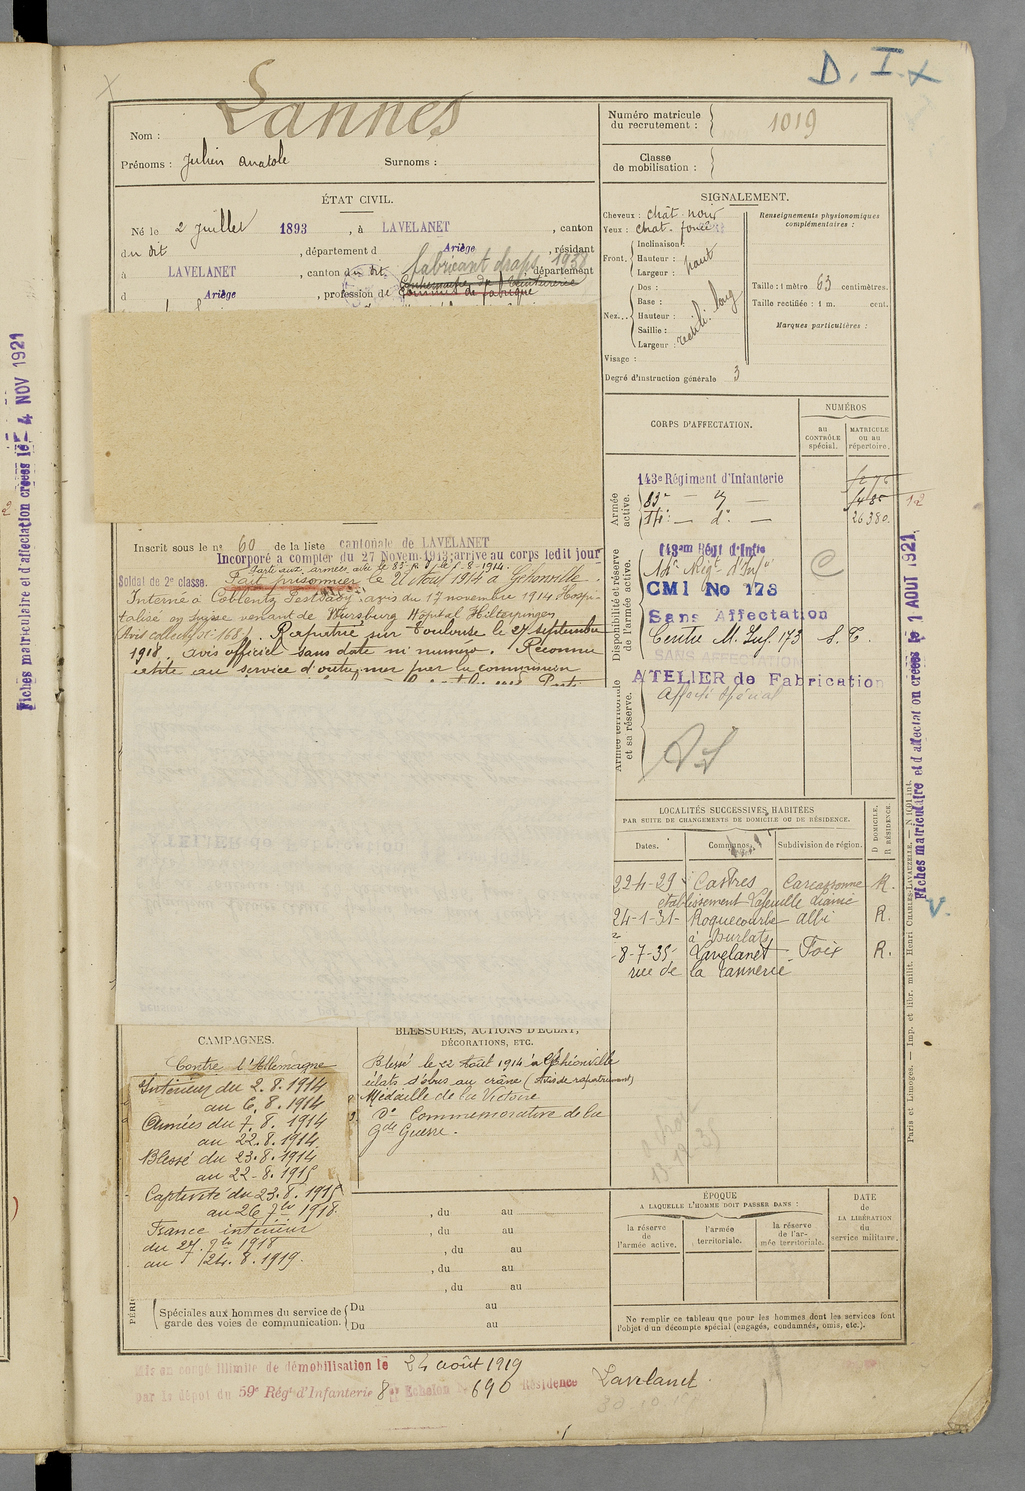 D. I. x
Lannes
Nom :
Prénoms : Julien Anatole Surnoms :
Numéro matricule du recrutement : 1019
Classe de mobilisation :
ÉTAT CIVIL.
Né le 2 Juillet 1893, à LAVELANET, canton
du dit, département d Ariège, résidant
à LAVELANET, canton du dit, département
fabricant draps 1938
d Ariège, profession de
Contremaitre de teinturerie
Commis de fabrique
SIGNALEMENT.
Cheveux : chât. noir
Yeux : chat. foncé
Front. Inclinaison :
Hauteur : haut
Largeur :
Nez... Dos :
Base :
Hauteur : rectili. long
Saillie :
Largeur :
Visage :
Degré d'instruction générale 3
Renseignements physionomiques complémentaires :
Taille : 1 mètre 63 centimètres.
Taille rectifiée : 1 m. cent.
Marques particulières :
CORPS D'AFFECTATION.
NUMÉROS
au CONTRÔLE spécial.
MATRICULE ou au répertoire.
Armée active.
143e Régiment d'Infanterie
83e — d° —
14e — d° — 26380
Disponibilité et réserve de l'armée active.
143am Régt d'Infie
14e Rég. d'Infie
CMI No 173
Sans Affectation
Centre M. Inf. 173 S. T.
SANS AFFECTATION
ATELIER de Fabrication
Armée territoriale et sa réserve.
Affecté spécial
Inscrit sous le n° 60 de la liste cantonale de LAVELANET
Incorporé à compter du 27 Novem. 1913; arrivé au corps ledit jour
Soldat de 2e classe. Fait prisonnier le 21 Aout 1914 à
Interné à Coblentz avis du 17 novembre 1914 Hospi-
talisé en suisse venant de Wursburg Hôpital Hilterfingen
Rapatrié sur Toulouse le 27 septembre
1918. avis officiel sans date ni numéro. Reconnu
apte au service d'outre mer par la commission
LOCALITÉS SUCCESSIVES HABITÉES
PAR SUITE DE CHANGEMENTS DE DOMICILE OU DE RÉSIDENCE.
Dates. Communes. Subdivision de région. D DOMICILE. R RÉSIDENCE.
22-4-29 Castres Carcassonne R.
24-1-31 Roquecourbe Albi R.
à Burlats
8-7-35 Lavelanet Foix R.
rue de la Tannerie
CAMPAGNES.
Contre l'Allemagne
Intérieur du 2.8.1914
au 6.8.1914
Armées du 7.8.1914
au 22.8.1914
Blessé du 23.8.1914
au 22-8.1915
Captivité du 23.8.1915
au 26 7bre 1918
France intérieur
du 27. 7bre 1918
au 24.8.1919.
BLESSURES, ACTIONS D'ÉCLAT,
DÉCORATIONS, ETC.
Blessé le 22 Août 1914 à
éclats d'obus au crâne (Avis de rapatriement)
Médaille de la Victoire
d° Commemorative de la
gde Guerre.
, du au
, du au
, du au
, du au
, du au
Spéciales aux hommes du service de garde des voies de communication.
Du au
Du au
ÉPOQUE
A LAQUELLE L'HOMME DOIT PASSER DANS :
la réserve de l'armée active.
l'armée territoriale.
la réserve de l'armée territoriale.
DATE de LA LIBÉRATION du service militaire.
Ne remplir ce tableau que pour les hommes dont les services font
l'objet d'un décompte spécial (engagés, condamnés, omis, etc.).
Mis en congé illimité de démobilisation le 24 août 1919
par le dépôt du 59e Régt d'Infanterie 8e Echelon 690 Résidence Lavelanet
Fiches matriculaire et d'affectation créées le - 4 NOV 1921
Fiches matriculaire et d'affectation créées le 1 AOUT 1921
Paris et Limoges. — Imp. et libr. milit. Henri CHARLES-LAVAUZELLE.
V.